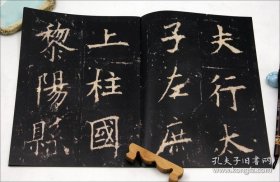 夫行太
子左庶
上柱國
黎陽縣
孔夫子旧书网